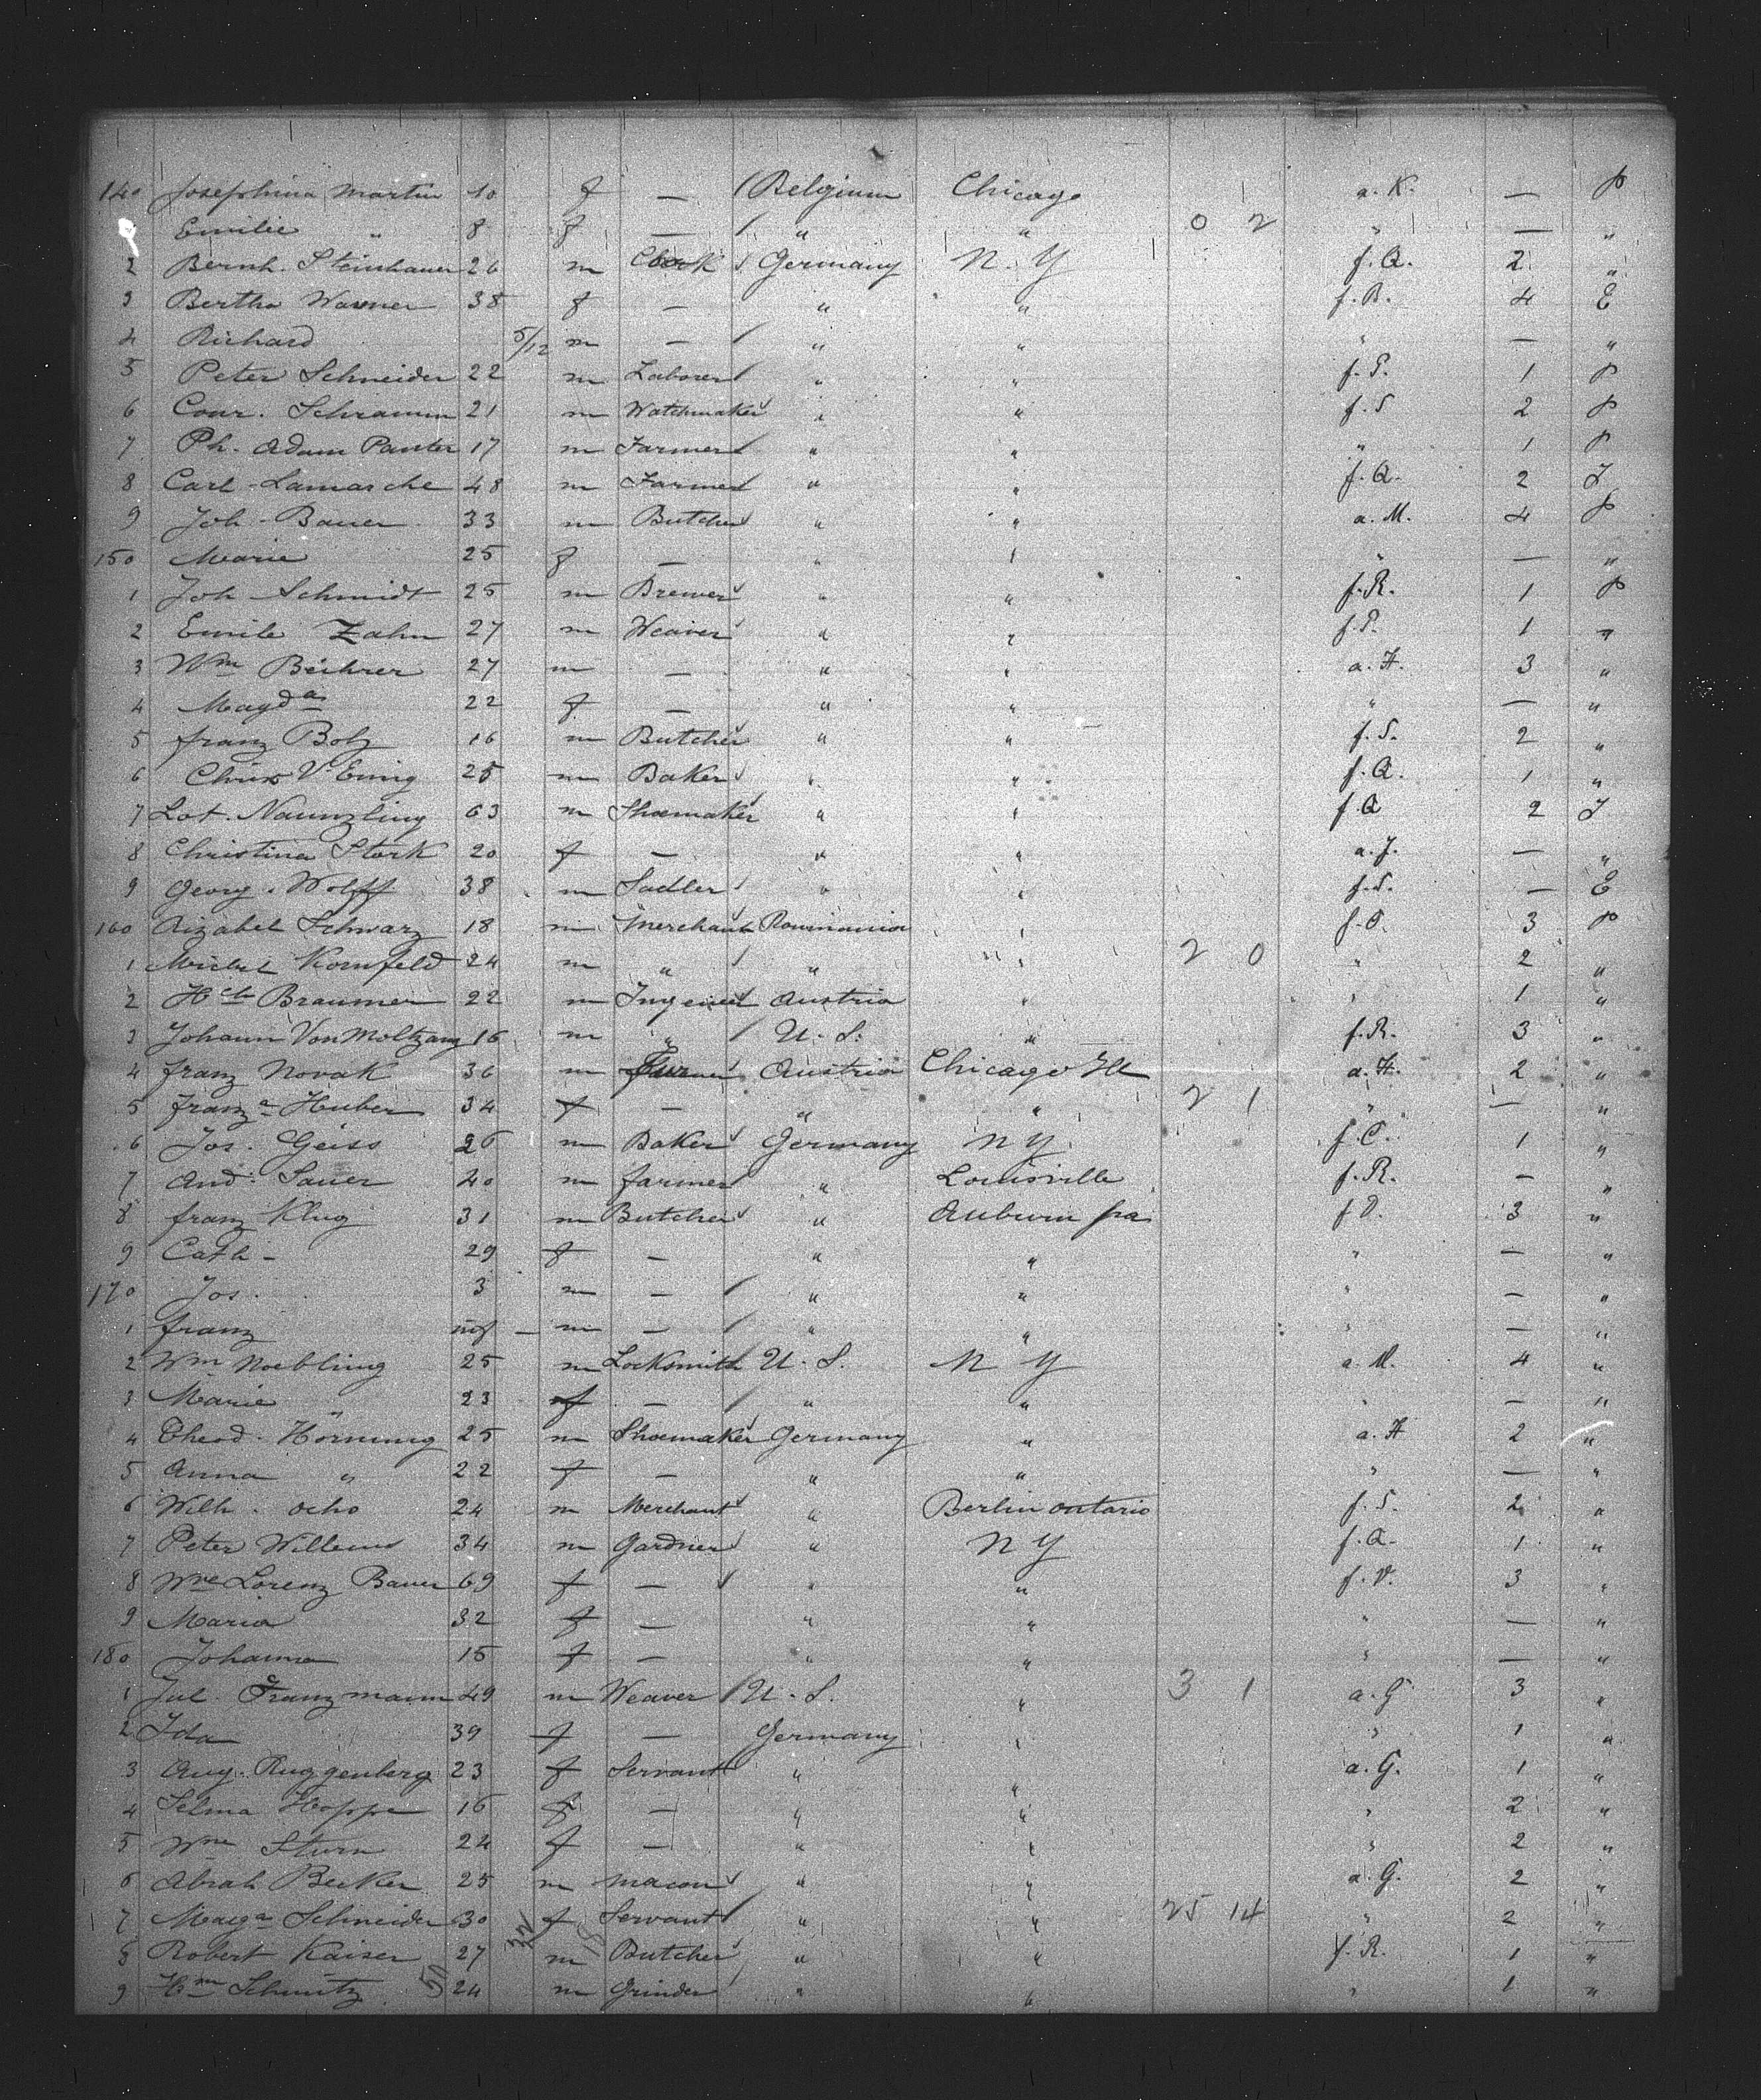 140 Josephina Martin 10 f — Belgium Chicago a. K. — P
Emilie " 8 f — " " 0 2 " — "
2 Bernh. Steinhauer 26 m Germany N. Y f. Q. 2 "
3 Bertha Warner 38 f — " " f. B. 4 E
4 Richard 5/12 m — " " " — "
5 Peter Schneider 22 m Laborer " " f. P. 1 P
6 Conr. Schramm 21 m Watchmaker " " f. S 2 P
7 Ph. Adam Panter 17 m Farmer " " " 1 P
8 Carl Lamasche 48 m Farmer " " f. Q. 2 I
9 Joh. Bauer 33 m Butcher " " a. M. 4 P
150 Marie 25 f — " " " — "
1 Joh Schmidt 25 m Brewer " " f. R. 1 P
2 Emile Zahn 27 m Weaver " " f. P. 1 "
3 Wm 27 m — " " a. H. 3 "
4 Magda 22 f — " " " — "
5 franz Bolz 16 m Butcher " " f. S. 2 "
6 V. Emig 25 m Baker " " f. Q. 1 "
7 Lot. Naunzling 63 m Shoemaker " " f. Q 2 I
8 Christina Stork 20 f — " " a. J. — "
9 Georg. Wolff 38 m Sadler " " f. S. — E
160 Schwarz 18 m Merchant Roumania " f. O. 3 P
1 Michel Kornfeld 24 m " " " 2 0 " 2 "
2 Hch Braumer 22 m Ingeneer Austria " " 1 "
3 Johann Von Moltzang 16 m " U. S. " f. R. 3 "
4 franz Novak 36 m Austria Chicago Ill a. H. 2 "
5 franza Huber 34 f — " " 2 1 " — "
6 Jos. Geiss 26 m Baker Germany N Y f. C. 1 "
7 And. Sauer 40 m farmer " Louisville f. R. — "
8 franz Klug 31 m Butcher " Auburn pa f D. 3 "
9 Cath — 29 f — " " " — "
170 Jos. 3 m — " " " — "
1 franz inf — m — " " " — "
2 Wm Noebling 25 m Locksmith U. S. N Y a. M. 4 "
3 Marie " 23 f — " " " — "
4 Theod. Hörnung 25 m Shoemaker Germany " a. H 2 "
5 Anna " 22 f — " " " — "
6 Wilh. ocho 24 m Merchant " Berlin ontario f. S. 2 "
7 Peter Willems 34 m Gardner " N Y f. Q. 1 "
8 Wwe Lorenz Bauer 69 f — " " f. V. 3 "
9 Maria 32 f — " " " — "
180 Johanna 15 f — " " " — "
1 Jul. Franzmann 49 m Weaver U. S. " 3 1 a. G 3 "
2 Ida 39 f — Germany " " 1 "
3 Aug. Ruggenberg 23 f Servant " " a. G. 1 "
4 Selma Hoppe 16 f — " " " 2 "
5 Wne Sturn 24 f — " " " 2 "
6 Abrah Becker 25 m macon " " a. G. 2 "
7 Marga Schneider 30 f Servant " " 25 14 " 2 "
8 Robert Kaiser 27 m Butcher " " f. R. 1 "
9 Hm Schmitz 24 m Grinder " " " 1 "